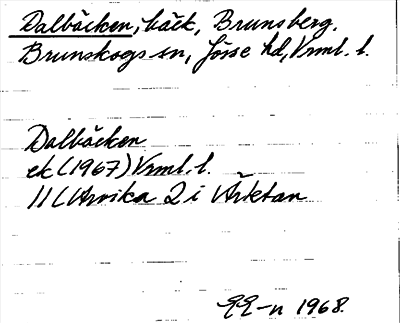 Dalbäcken, bäck, Brunsberg,
Brunskogs sn, Jösse hd, Vrml. l.
Dalbäcken
ek (1967) Vrml. l.
11C Arvika 2 i
1968.